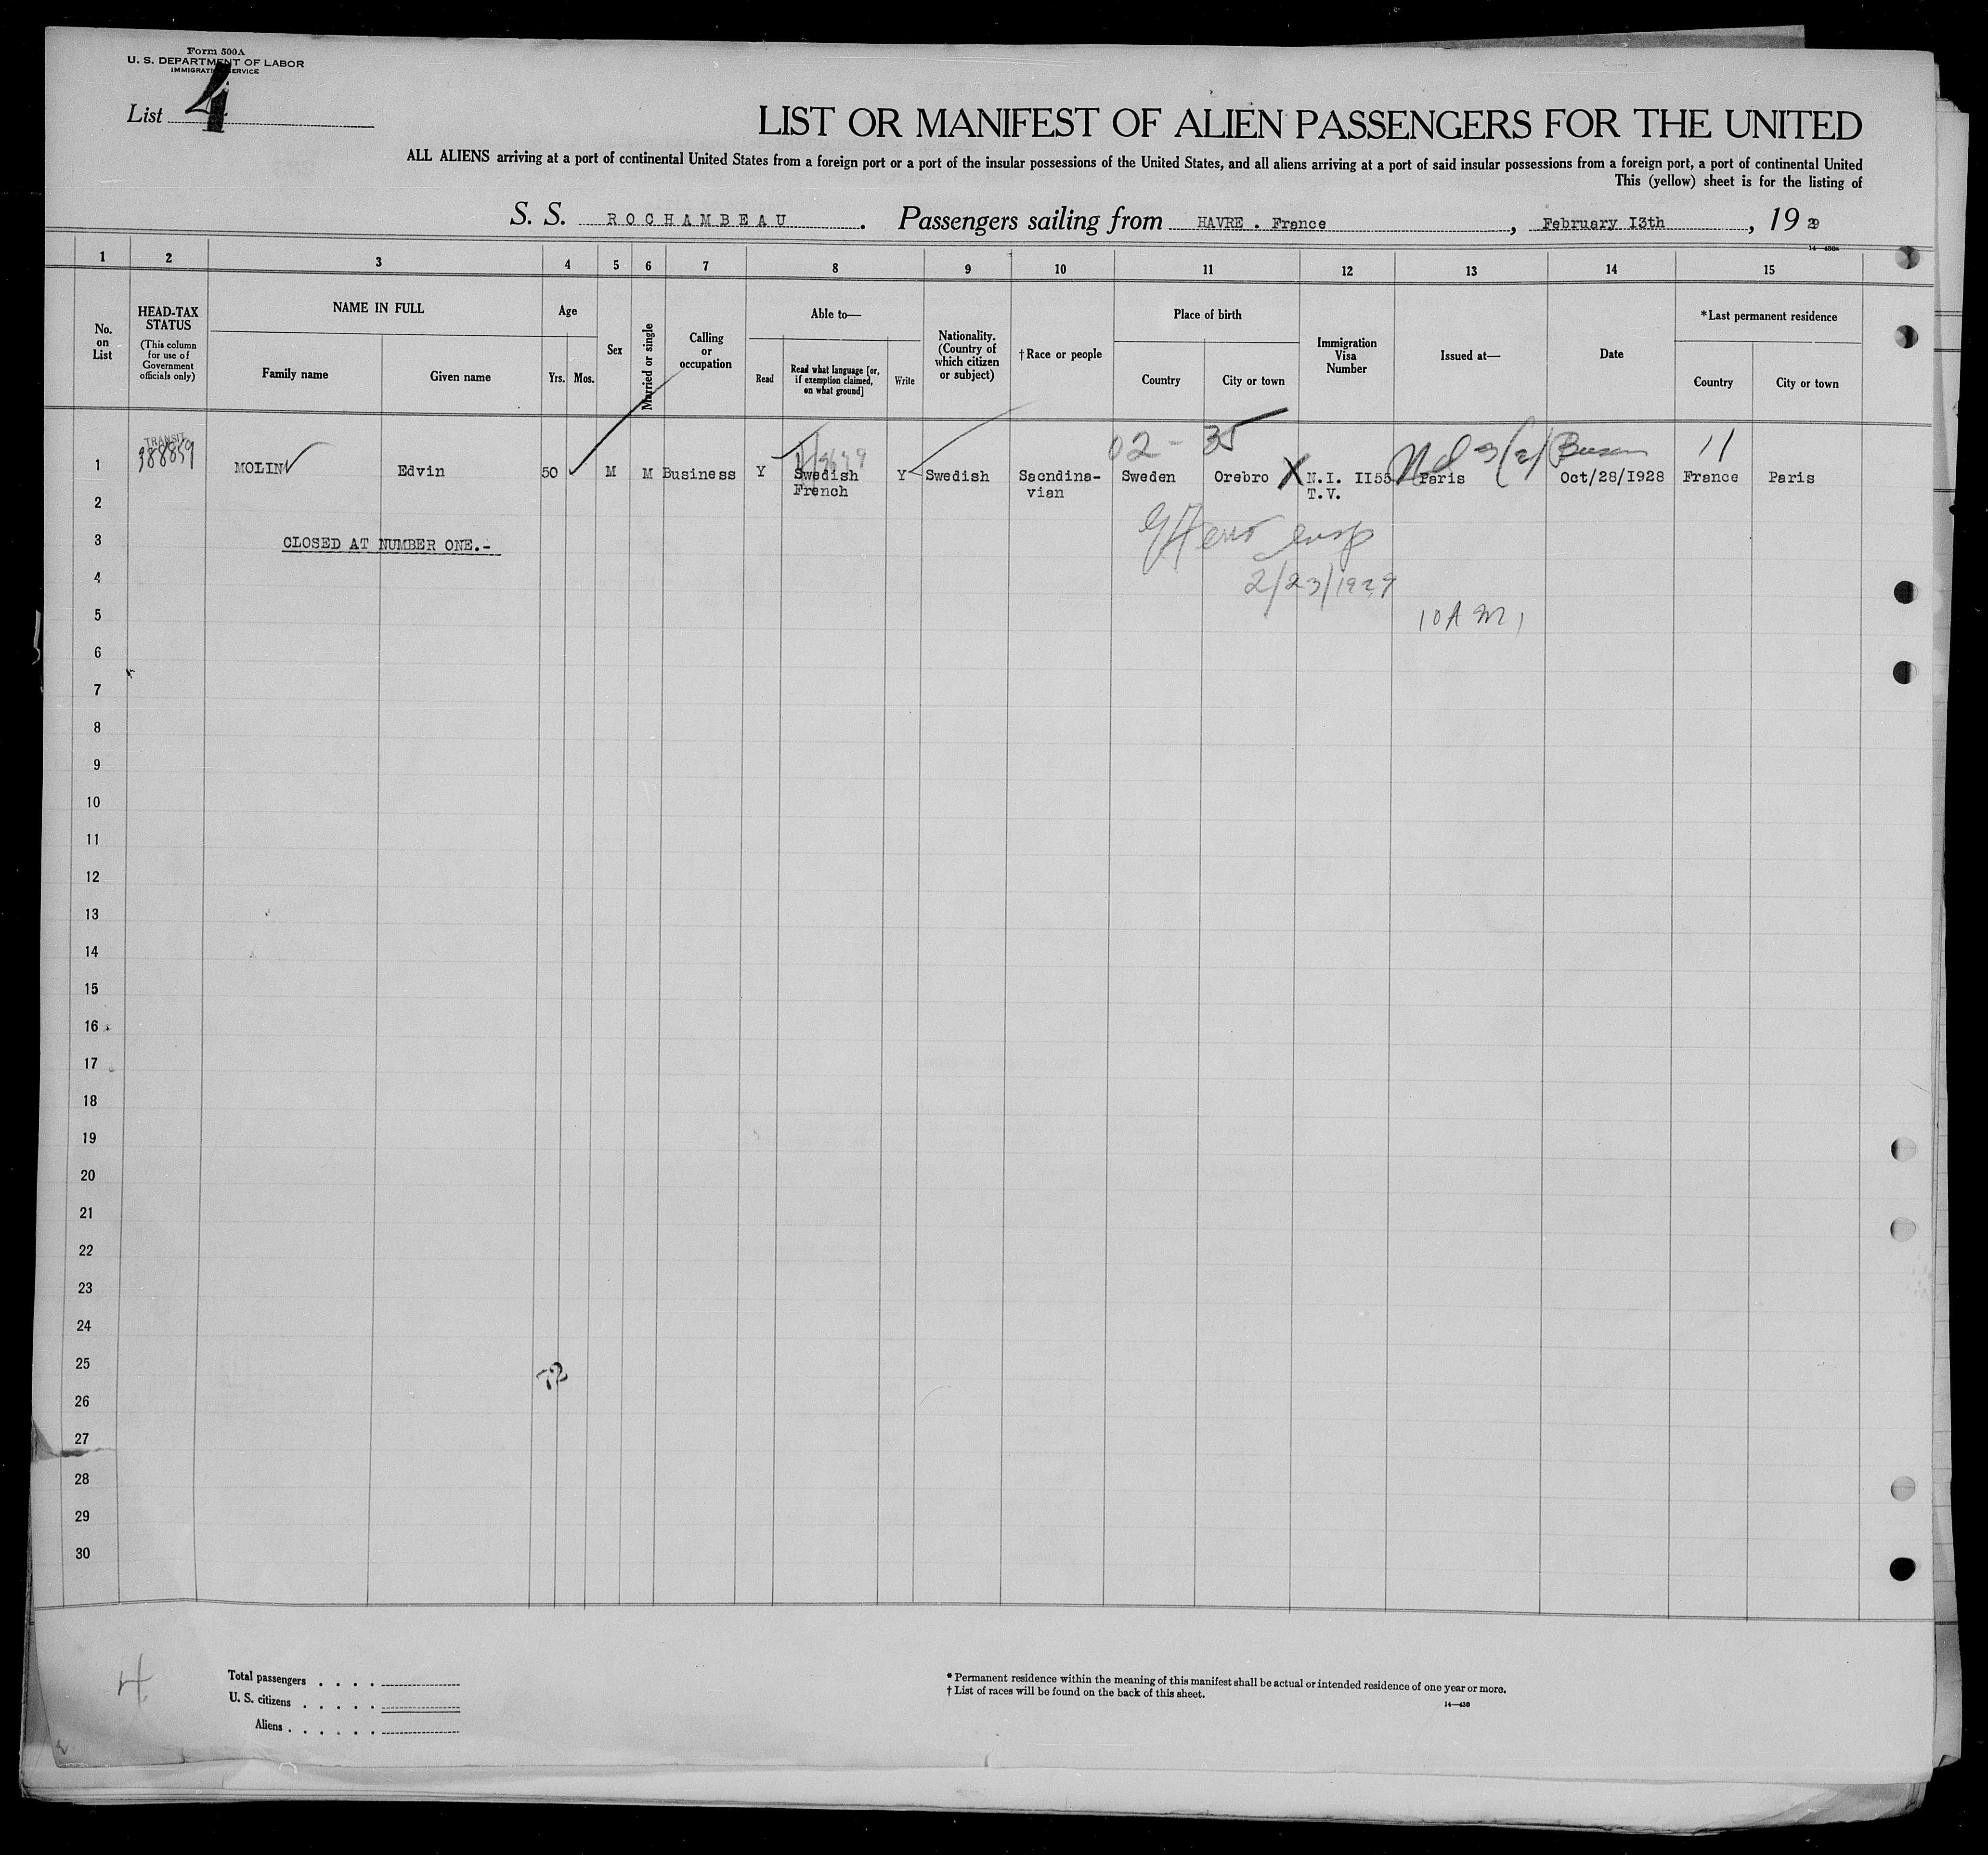 Form 500A
U. S. DEPARTMENT OF LABOR
IMMIGRATION SERVICE
List 4
LIST OR MANIFEST OF ALIEN PASSENGERS FOR THE UNITED
ALL ALIENS arriving at a port of continental United States from a foreign port or a port of the insular possessions of the United States, and all aliens arriving at a port of said insular possessions from a foreign port, a port of continental United
This (yellow) sheet is for the listing of
S. S. ROCHAMBEAU. Passengers sailing from HAVRE . France, February I3th, 19 29
14—430a
1 2 3 4 5 6 7 8 9 10 11 12 13 14 15
No. on List
HEAD-TAX STATUS
(This column for use of Government officials only)
NAME IN FULL
Family name
Given name
Age
Yrs. Mos.
Sex
Married or single
Calling or occupation
Able to—
Read
Read what language [or, if exemption claimed, on what ground]
Write
Nationality. (Country of which citizen or subject)
†Race or people
Place of birth
Country
City or town
Immigration Visa Number
Issued at—
Date
*Last permanent residence
Country
City or town
02 - 35 11
TRANSIT
388859
1 MOLIN Edvin 50 M M Business Y Swedish Y Swedish Sacndina- Sweden Orebro X N.I. II55 Paris Oct/28/1928 France Paris
French vian T.V.
2
3 CLOSED AT NUMBER ONE.-
insp
4 2/23/1929
5 10 A M
6
7
8
9
10
11
12
13
14
15
16
17
18
19
20
21
22
23
24
25
26
27
28
29
30
4
Total passengers . . . .
U. S. citizens . . . . .
Aliens . . . . . .
* Permanent residence within the meaning of this manifest shall be actual or intended residence of one year or more.
† List of races will be found on the back of this sheet.
14—430